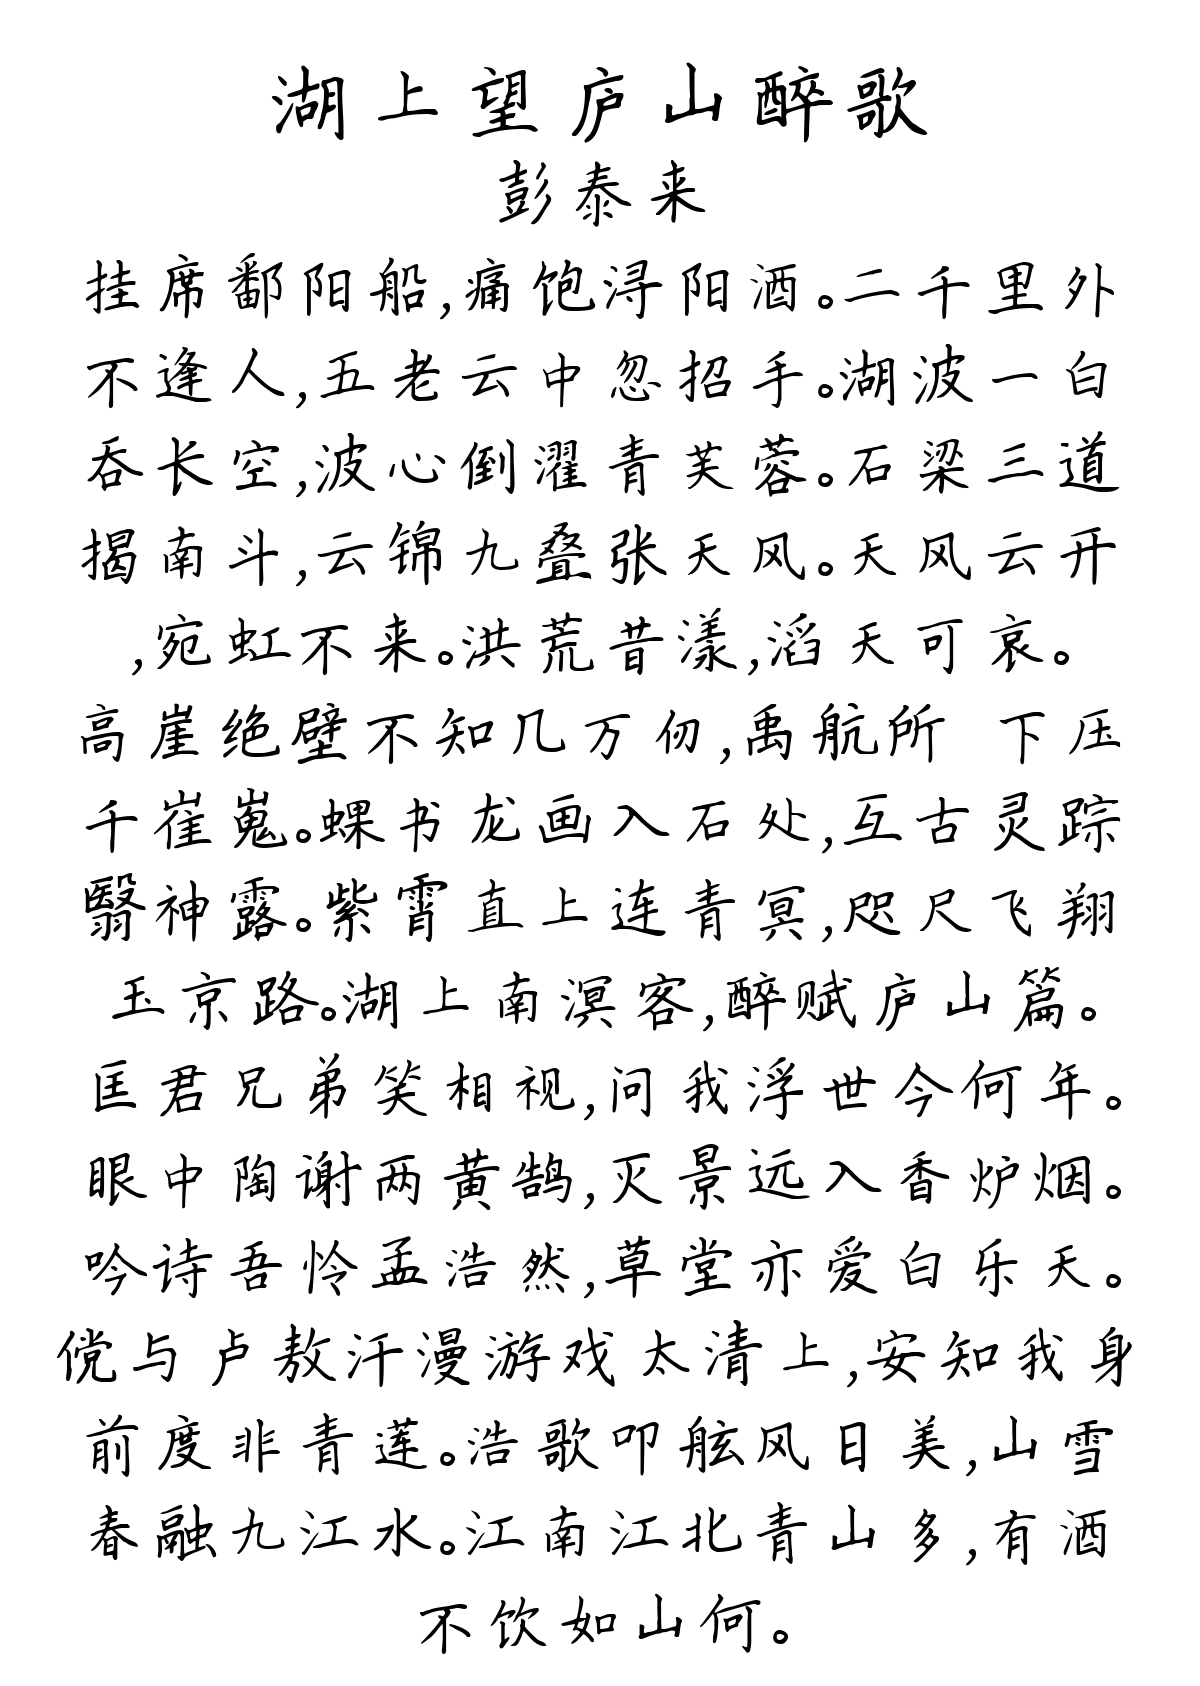 湖上望庐山醉歌
彭泰来
挂席鄱阳船,痛饱浔阳酒。二千里外
不逢人,五老云中忽招手。湖波一白
吞长空,波心倒濯青芙蓉。石梁三道
揭南斗,云锦九叠张天风。天风云开
,宛虹不来。洪荒昔漾,滔天可哀。
高崖绝壁不知几万仞,禹航所 下压
千崔嵬。蜾书龙画入石处,亙古灵踪
翳神露。紫霄直上连青冥,咫尺飞翔
玉京路。湖上南溟客,醉赋庐山篇。
匡君兄弟笑相视,问我浮世今何年。
眼中陶谢两黄鹄,灭景远入香炉烟。
吟诗吾怜孟浩然,草堂亦爱白乐天。
傥与卢敖汗漫游戏太清上,安知我身
前度非青莲。浩歌叩舷风日美,山雪
春融九江水。江南江北青山多,有酒
不饮如山何。